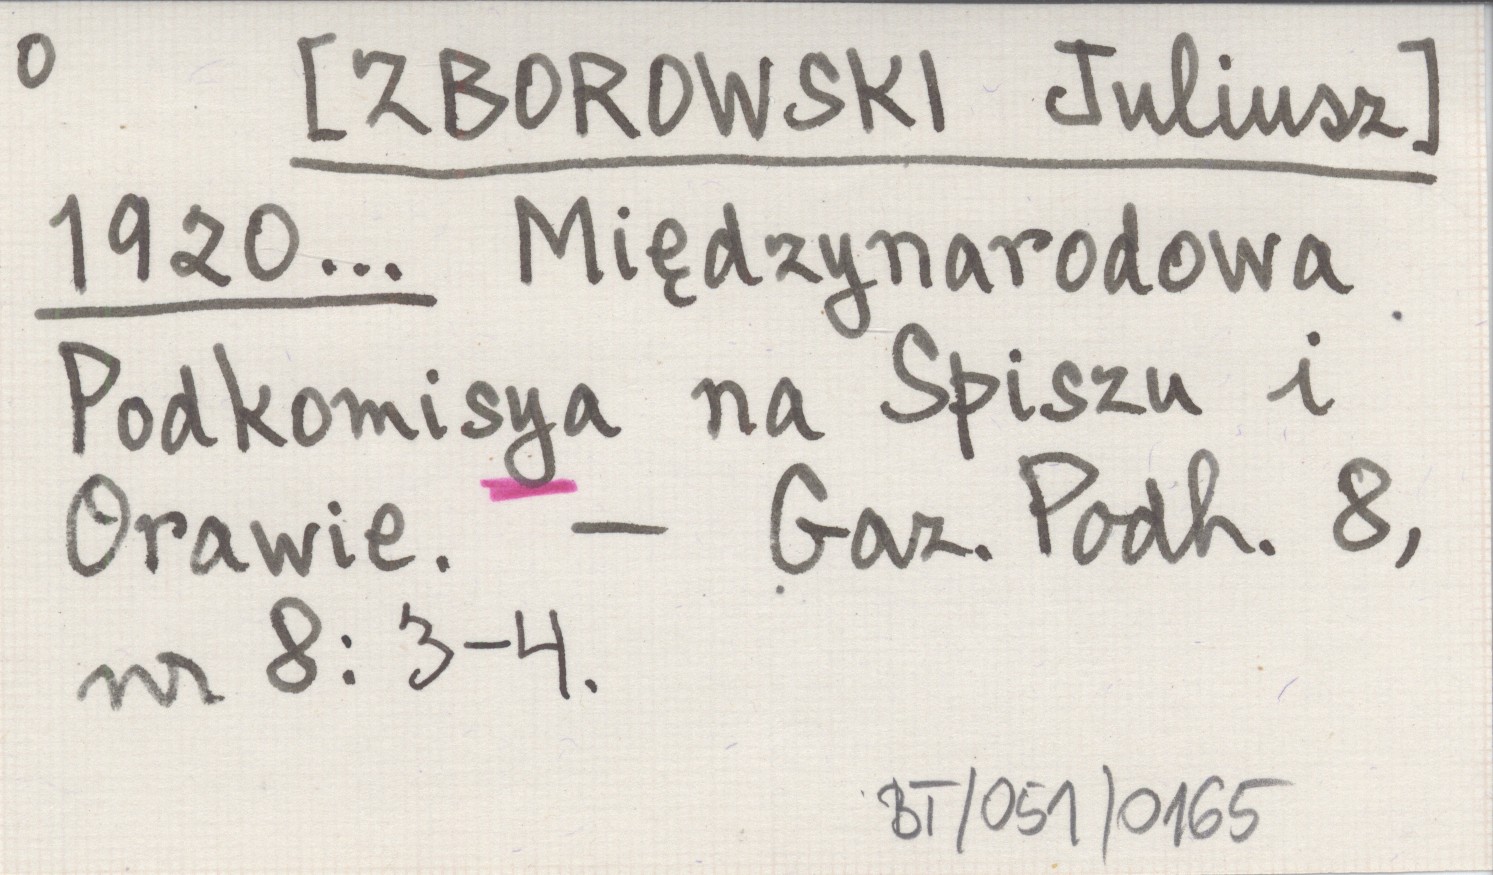 o [ZBOROWSKI Juliusz]
1920... Międzynarodowa
Podkomisya na Spiszu i
Orawie. — Gaz. Podh. 8,
nr 8: 3-4.
BT/051/0165